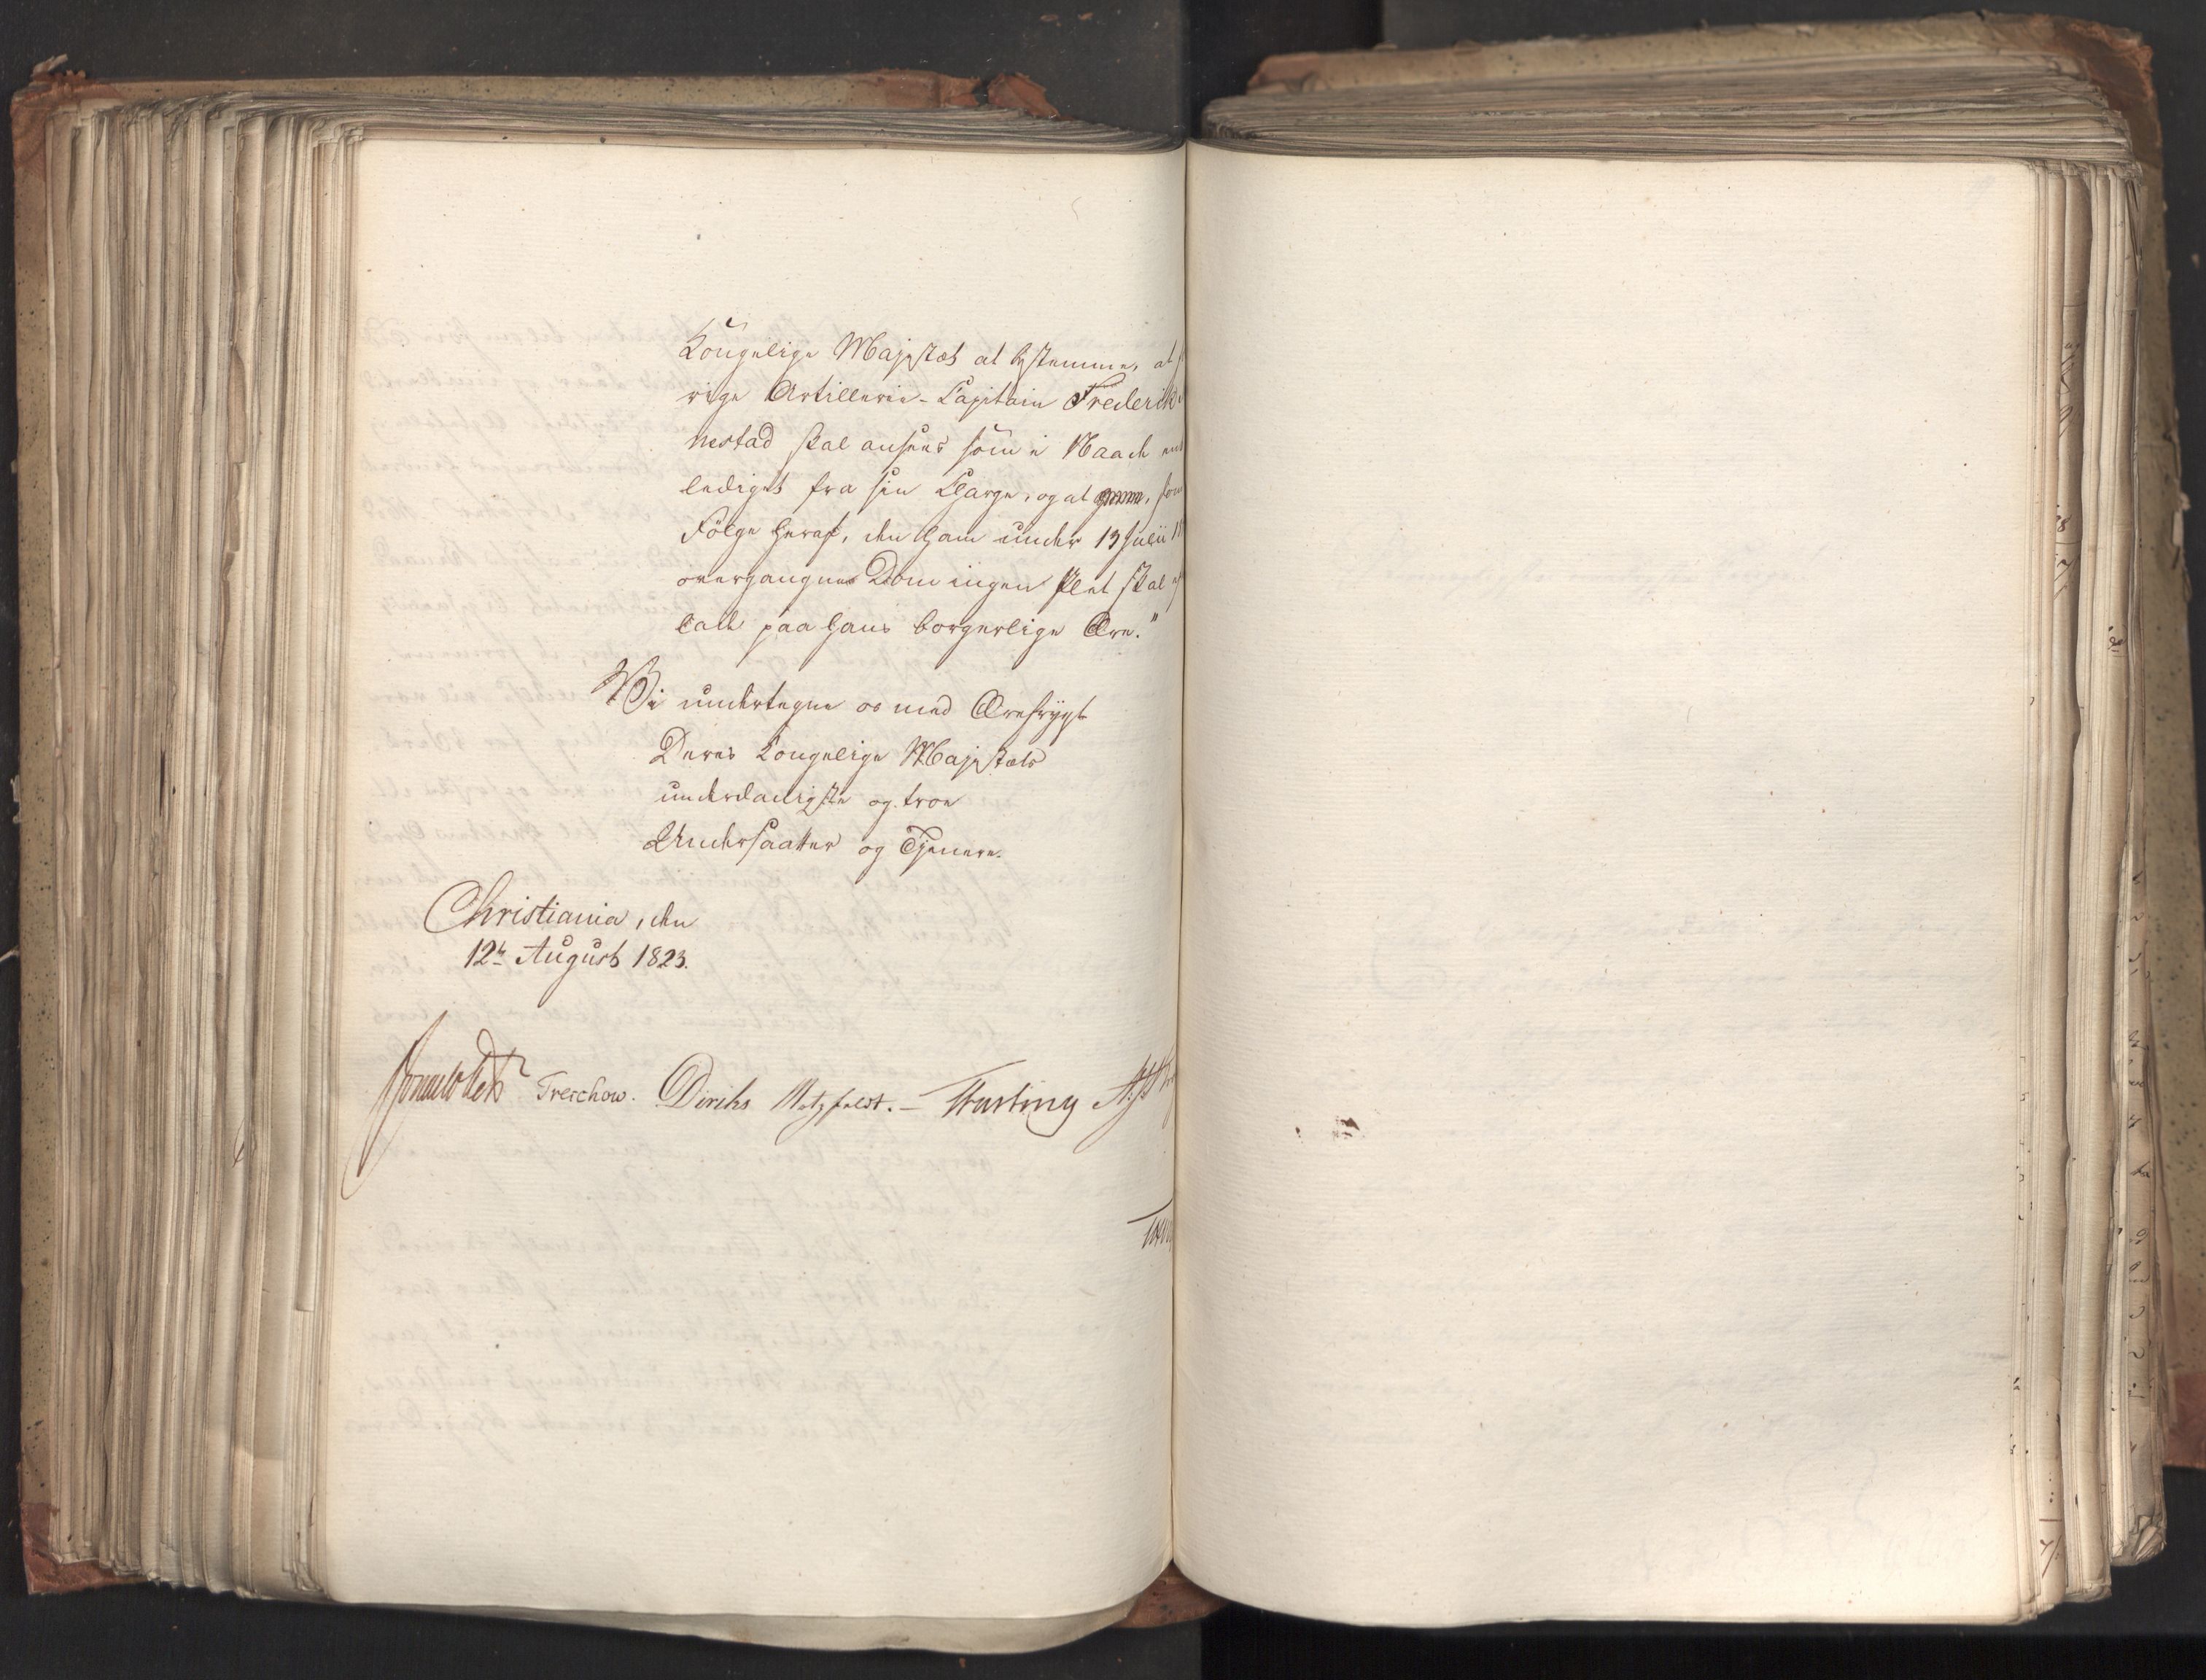 Kongelige Majestæt at bestemme, at
rige Artillerie-Capitain Frederik
nestad skal ansees som i Naade ent
lediget fra sin Charge, og at som
Følge heraf, den ham under 13 Julii 18
overgangne Dom ingen Plet skal
falde paa hans borgerlige Ære."
Vi undertegne os med Ærefrygt
Deres Kongelige Majestæts
underdanigste og troe
Undersaatter og Tjenere.
Christiania, den
12te August 1823.
Sommerhielm Treschow. Diriks Motzfeldt. — Fasting